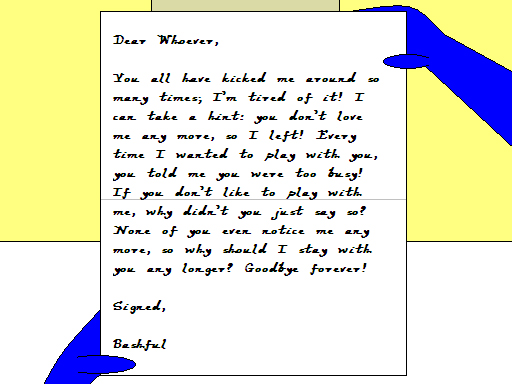 Dear Whoever,
You all have kicked me around so
many times; I'm tired of it! I
can take a hint: you don't love
me any more, so I left! Every
time I wanted to play with you,
you told me you were too busy!
If you don't like to play with
me, why didn't you just say so?
None of you even notice me any
more, so why should I stay with
you any longer? Goodbye forever!
Signed,
Bashful